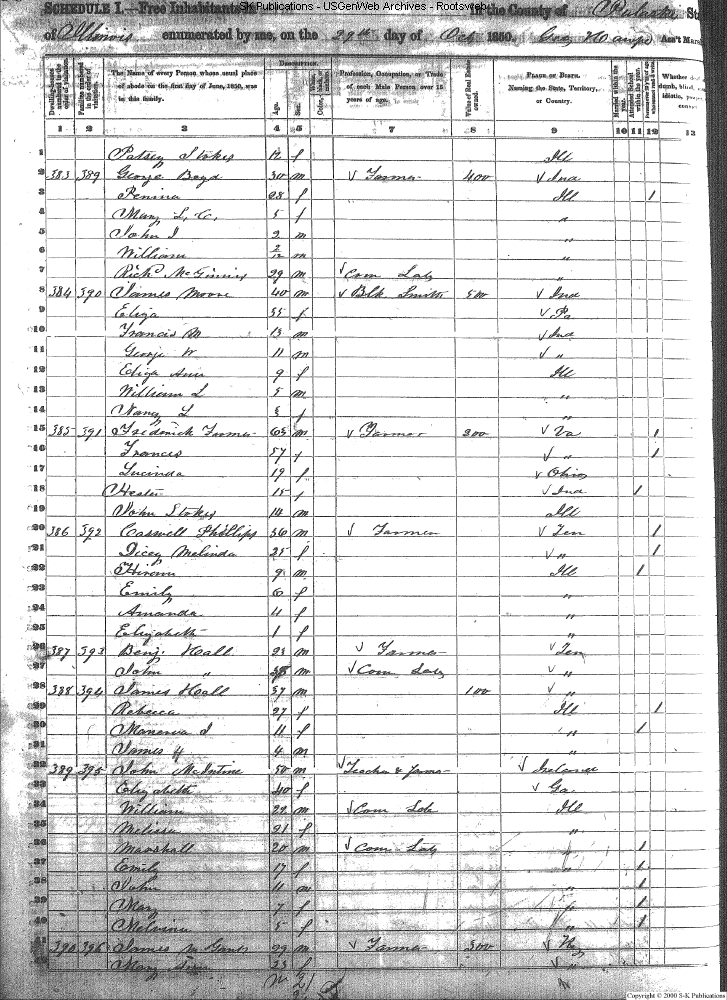 SK Publications - USGenWeb Archives - Rootsweb
SCHEDULE I.—Free Inhabitants in in the County of Pulaski
of Illinois enumerated by me, on the 29th day of Oct 1850. Ass't Mar
Dwelling-houses numbered in the order of visitation. Families numbered in the order of visitation. The Name of every Person whose usual place of abode on the first day of June, 1850, was in this family. DESCRIPTION. Age. Sex. Color Profession, Occupation, or Trade of each Male Person over 15 years of age. Value of Real Estate owned. PLACE OF BIRTH. Naming the State, Territory, or Country. Married within the year. Attended School within the year. Whether
1 2 3 4 5 6 7 8 9 10 11 12 13
1 Patsey Stokes 12 f Ill
2 383 389 George Boyd 30 m Farmer 400 Ind
3 Penina 28 f Ill 1
4 Mary L. C. 5 f "
5 John J 2 m "
6 William 2/12 m "
7 Richd McGinnis 29 m Com Lab "
8 384 390 James Moore 40 m Blk Smith 500 Ind
9 Eliza 35 f Pa
10 Francis M 13 m Ind
11 George W 11 m "
12 Eliza Ann 9 f Ill
13 William L 5 m "
14 Nancy L f "
15 385 391 Frederick 65 m Farmer 200 Va 1
16 Frances 57 f " 1
17 Lucinda 19 f Ohio
18 Hester 15 f Ind 1
19 John Stokes 14 m Ill
20 386 392 Caswell Phillips 36 m Farmer Ten 1
21 Dicey Melinda 25 f " 1
22 Hiram 9 m Ill 1
23 Emily 6 f "
24 Amanda 4 f "
25 Elizabeth 1 f "
26 387 393 Benj. Hall 23 m Farmer Ten
27 John " m Com Lab "
28 388 394 James Hall 57 m 100 "
29 Rebecca 27 f Ill 1
30 Manerva J 11 f " 1
31 James 4 m "
32 389 395 John McIntire 50 m Teacher & Farmer Ireland
33 Elizabeth 40 f Ga.
34 William 22 m Com Lab Ill
35 Melissa 21 f "
36 Marshall 20 m Com Lab " 1
37 Emily 17 f " 1
38 John 11 m " 1
39 Mary 7 f " 1
40 Melvina 5 f " 1
41 390 396 James 29 m Farmer 300 Ky
42 Mary 33 f "
Copyright © 2000 S-K Publications